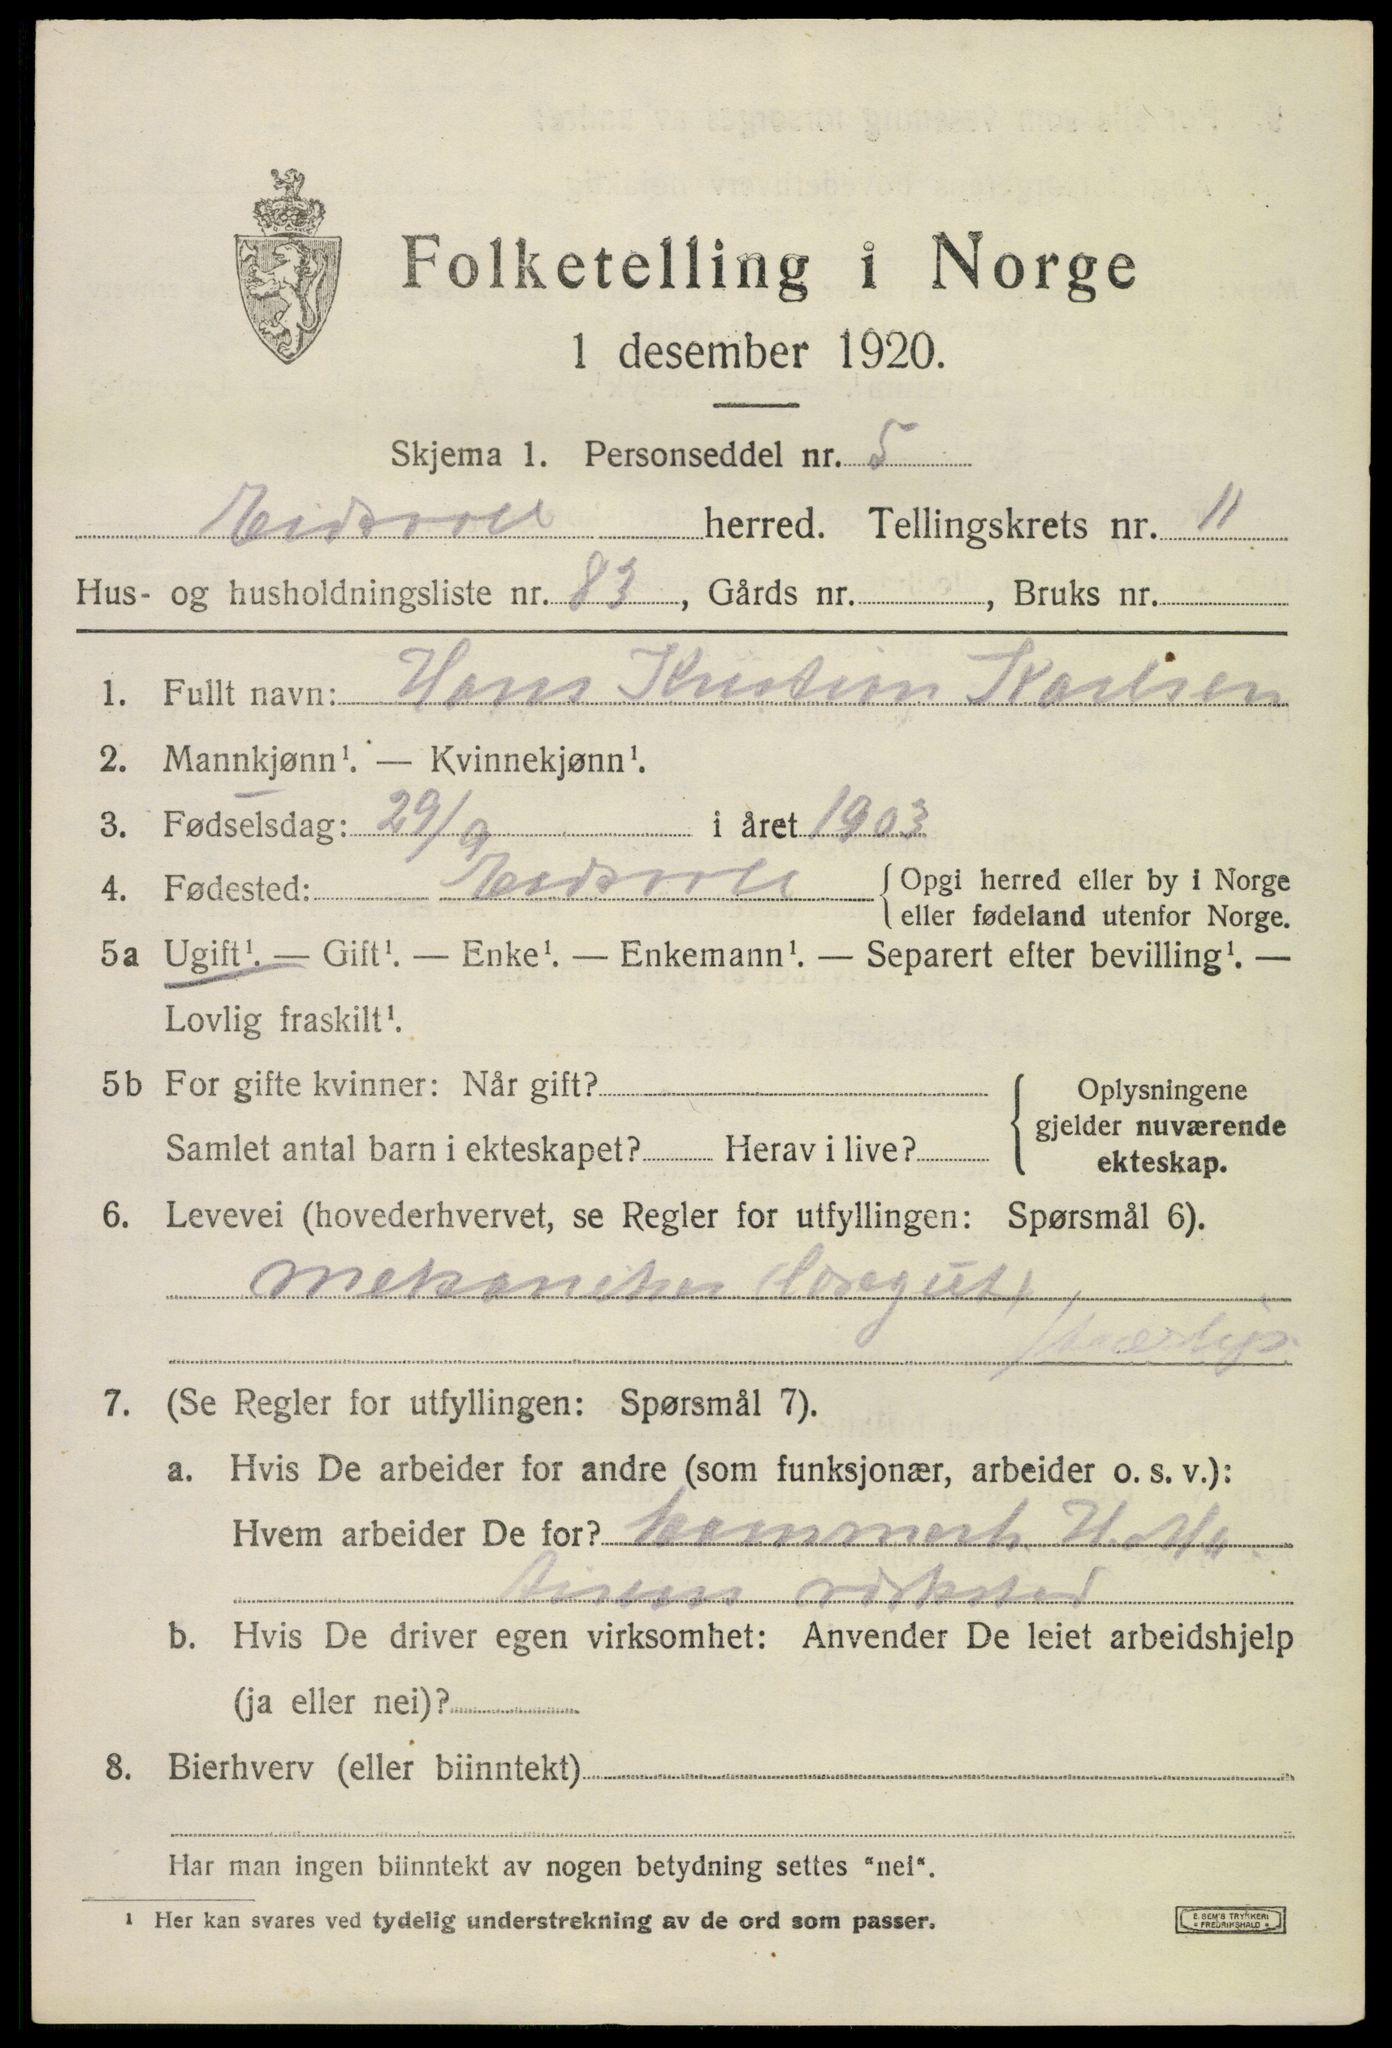 Folketelling i Norge
1 desember 1920.
Skjema 1. Personseddel nr. 5
Eidsvoll herred. Tellingskrets nr. 11
Hus- og husholdningsliste nr. 83, Gårds nr. , Bruks nr.
1. Fullt navn: Hans Kristian Karlsen
2. Mannkjønn¹. — Kvinnekjønn¹.
3. Fødselsdag: 29/9 i året 1903
4. Fødested: Eidsvoll { Opgi herred eller by i Norge
eller fødeland utenfor Norge.
5a Ugift¹. — Gift¹. — Enke¹. — Enkemann¹. — Separert efter bevilling¹. —
Lovlig fraskilt¹.
5b For gifte kvinner: Når gift? { Oplysningene
gjelder nuværende
Samlet antal barn i ekteskapet? Herav i live?
ekteskap.
6. Levevei (hovederhvervet, se Regler for utfyllingen: Spørsmål 6).
Mekaniker (læregut)
7. (Se Regler for utfyllingen: Spørsmål 7).
a. Hvis De arbeider for andre (som funksjonær, arbeider o. s. v.):
Hvem arbeider De for? H. Ma-
verksted
b. Hvis De driver egen virksomhet: Anvender De leiet arbeidshjelp
(ja eller nei)?
8. Bierhverv (eller biinntekt)
Har man ingen biinntekt av nogen betydning settes "nei".
¹ Her kan svares ved tydelig understrekning av de ord som passer.
E. SEM'S TRYKKERI
* FREDRIKSHALD *